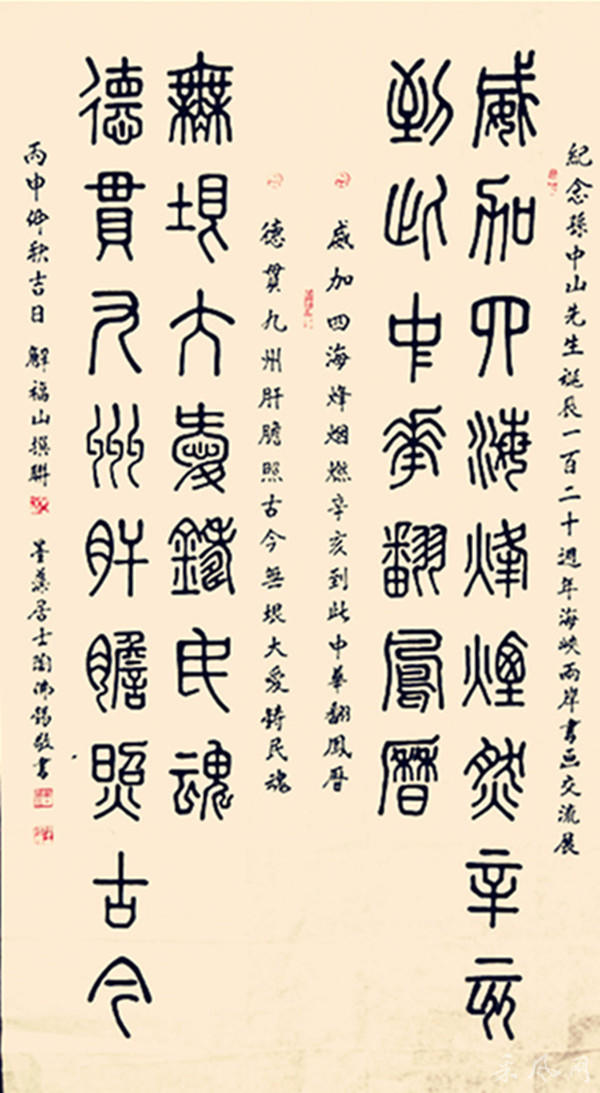 紀念孫中山先生誕辰一百二十週年海峽兩岸書畫交流展
威加四海烽煙然辛亥
到此中華翻鳳曆
威加四海烽烟燃辛亥到此中華翻鳳曆
德貫九州肝膽照古今無垠大愛鑄民魂
德貫九州肝膽照古今
無垠大愛鑄民魂
丙申仲秋吉日 解福山撰聯 墨居士佛錫敬書
采风网